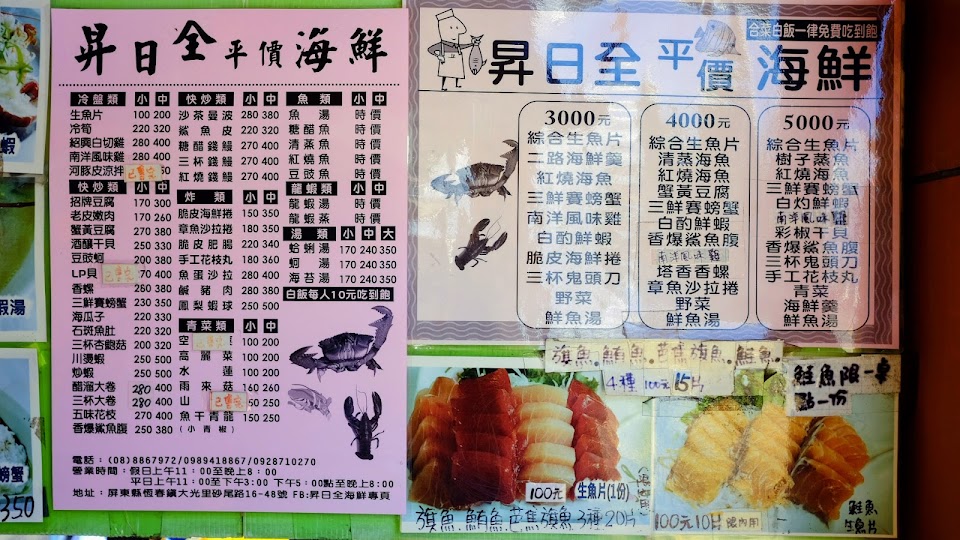 昇日全平價海鮮
冷盤類 小 中
生魚片 100 200
冷筍 220 320
紹興白切雞 280 400
南洋風味雞 280 400
河豚皮涼拌 已售完
快炒類 小 中
招牌豆腐 170 300
老皮嫩肉 170 260
蟹黃豆腐 210 300
酒釀干貝 250 330
豆豉蚵 200
LP貝 已售完 70 400
香螺 280 380
三鮮賽螃蟹 230 350
海瓜子 220 330
石斑魚肚 220 320
三杯杏鮑菇 200 320
川燙蝦 250 500
炒蝦 250 500
醋溜大卷 280 400
三杯大卷 280 400
五味花枝 270 400
香爆鯊魚腹 250 380
快炒類 小 中
沙茶曼波 280 380
鯊魚皮 220 320
糖醋錢鰻 270 400
三杯錢鰻 270 400
紅燒錢鰻 270 400
炸類 小 中
脆皮海鮮捲 150 350
章魚沙拉捲 180 350
脆皮肥腸 220 340
手工花枝丸 180 360
魚蛋沙拉 280 400
鹹豬肉 280 400
鳳梨蝦球 250 500
青菜類 小 中
空 100 200
高麗菜 100 200
水蓮 100 200
雨來菇 160 260
山 已售完 150 250
魚干青龍 150 250
(小青椒)
魚類 小 中
魚湯 時價
糖醋魚 時價
清蒸魚 時價
紅燒魚 時價
鹽烤魚 時價
龍蝦類 小 中
龍蝦湯 時價
龍蝦蒸 時價
湯類 小 中 大
蛤蜊湯 170 240 350
蚵湯 170 240 350
海苔湯 170 240 350
白飯每人10元吃到飽
電話：(08)8867972/0989418867/0928710270
營業時間：假日上午11：00至晚上8：00
平日上午11：00至下午3：00 下午5：00點至晚上8：00
地址：屏東縣恆春鎮大光里砂尾路16-48號 FB:昇日全海鮮專頁
合菜白飯一律免費吃到飽
昇日全平價海鮮
3000元
綜合生魚片
二路海鮮羹
紅燒海魚
三鮮賽螃蟹
南洋風味雞
白酌鮮蝦
脆皮海鮮捲
三杯鬼頭刀
野菜
鮮魚湯
4000元
綜合生魚片
清蒸海魚
紅燒海魚
蟹黃豆腐
三鮮賽螃蟹
白酌鮮蝦
香爆鯊魚腹
南洋風味雞
塔香香螺
章魚沙拉捲
野菜
鮮魚湯
5000元
綜合生魚片
樹子蒸魚
紅燒海魚
三鮮賽螃蟹
白灼鮮蝦
南洋風味雞
彩椒干貝
香爆鯊魚腹
三杯鬼頭刀
手工花枝丸
青菜
海鮮羹
鮮魚湯
旗魚.鮪魚.芭蕉旗魚.鮭魚.
4種 100元 15片
鮭魚限一桌
點一份
100元 生魚片(1份)
旗魚.鮪魚.芭蕉旗魚3種20片
100元10片 限內用
鮭魚
生魚片
蝦
蝦湯
螃蟹
350